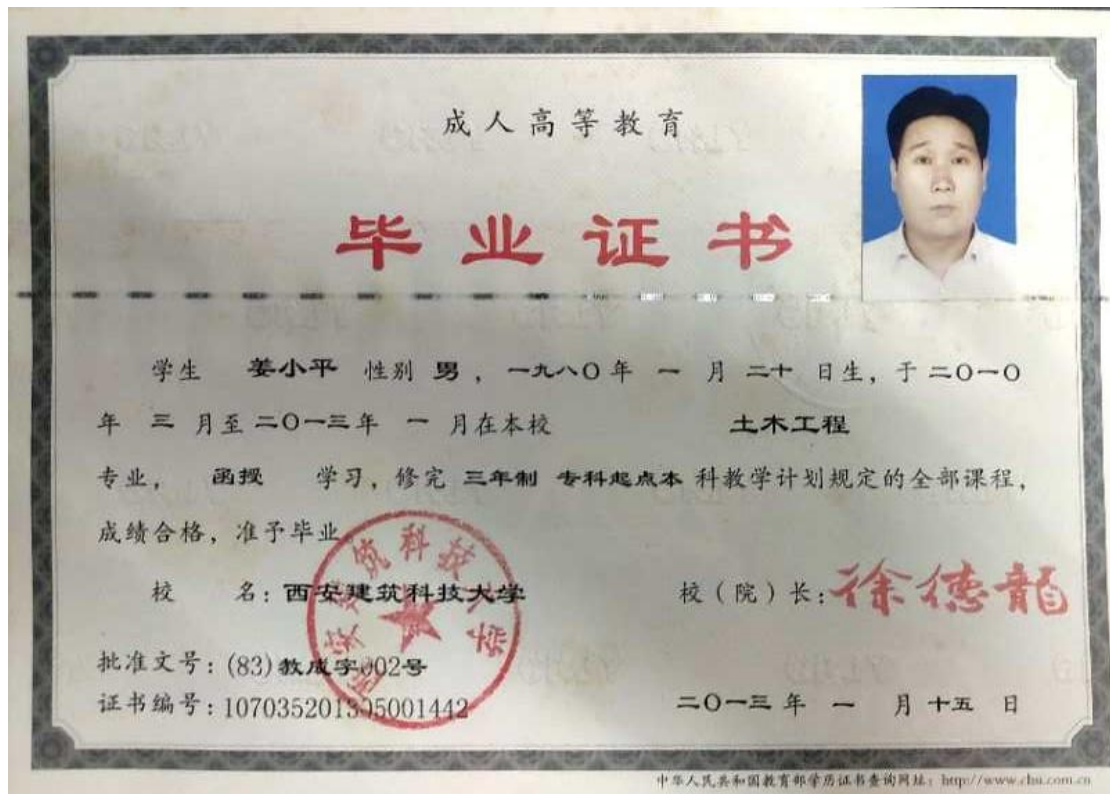 成人高等教育
毕业证书
学生 姜小平 性别 男，一九八〇年 一 月 二十 日生，于二〇一〇
年 三 月至二〇一三年 一 月在本校 土木工程
专业， 函授 学习，修完 三年制 专科起点本 科教学计划规定的全部课程，
成绩合格，准予毕业。
校 名：西安建筑科技大学
校（院）长：徐德龍
批准文号：(83)教成字002号
证书编号：107035201305001442
二〇一三年 一 月 十五 日
西安建筑科技大学
中华人民共和国教育部学历证书查询网址：http://www.chsi.com.cn